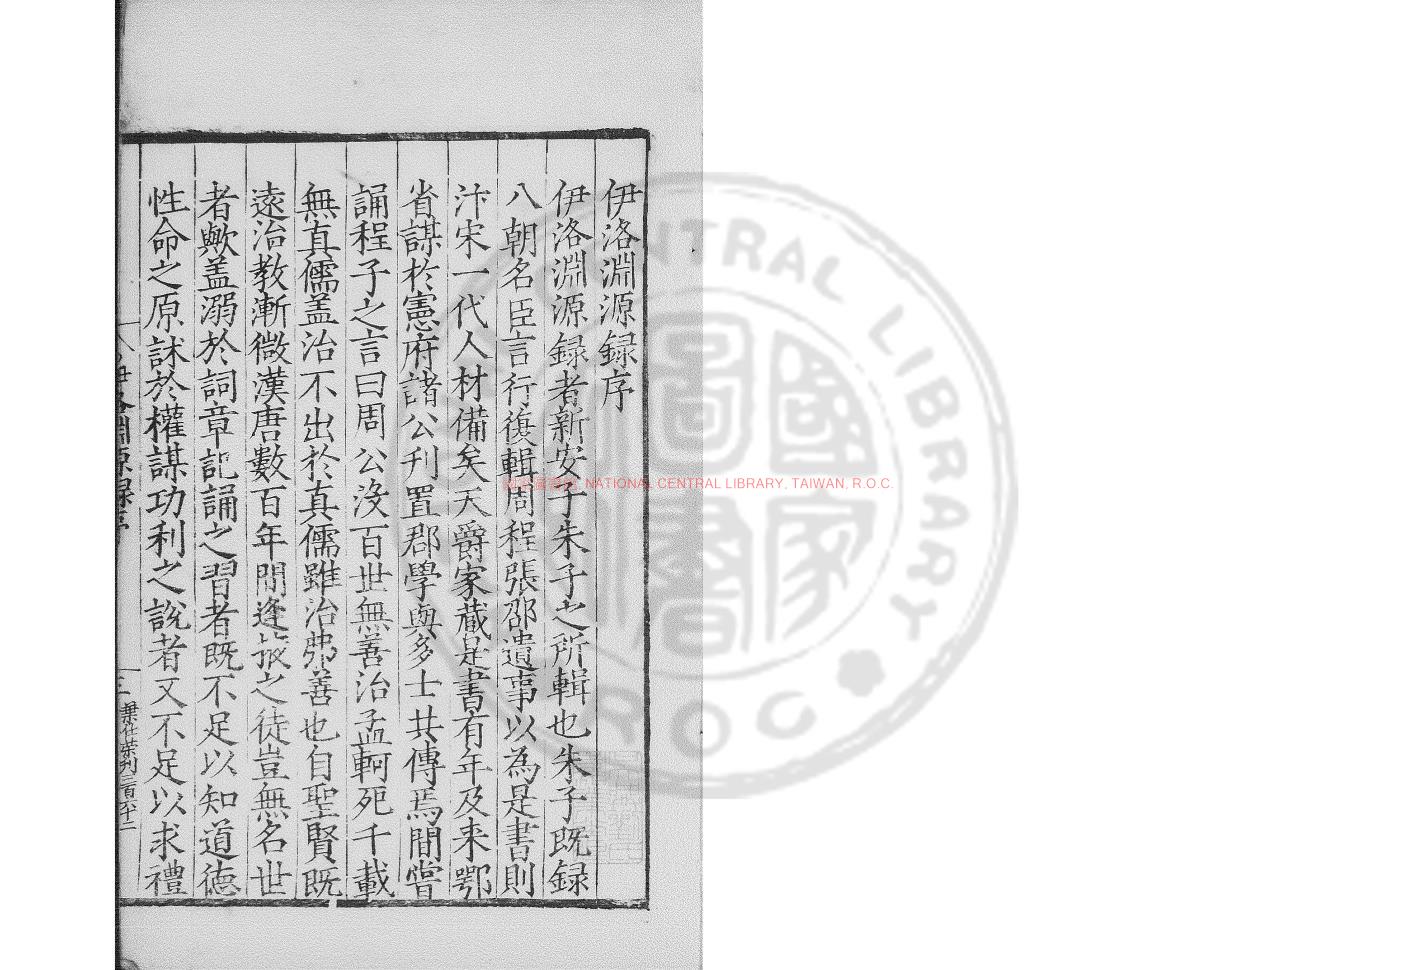 伊洛淵源録序
伊洛淵源録者新安子朱子之所輯也朱子既録
八朝名臣言行復輯周程張邵遺事以為是書則
汴宋一代人材備矣天爵家藏是書有年及来鄂
省謀於憲府諸公刋置郡學與多士共傳焉間甞
誦程子之言曰周公沒百世無善治孟軻死千載
無真儒盖治不出於真儒雖治弗善也自聖賢既
遠治教漸微漢唐數百年間逢掖之徒豈無名世
者歟盖溺於詞章記誦之習者既不足以知道德
性命之原訹於權謀功利之說者又不足以求禮
伊洛淵源録序
NATIONAL CENTRAL LIBRARY, TAIWAN, R.O.C.
CENTRAL LIBRARY
ROC
國家圖書館